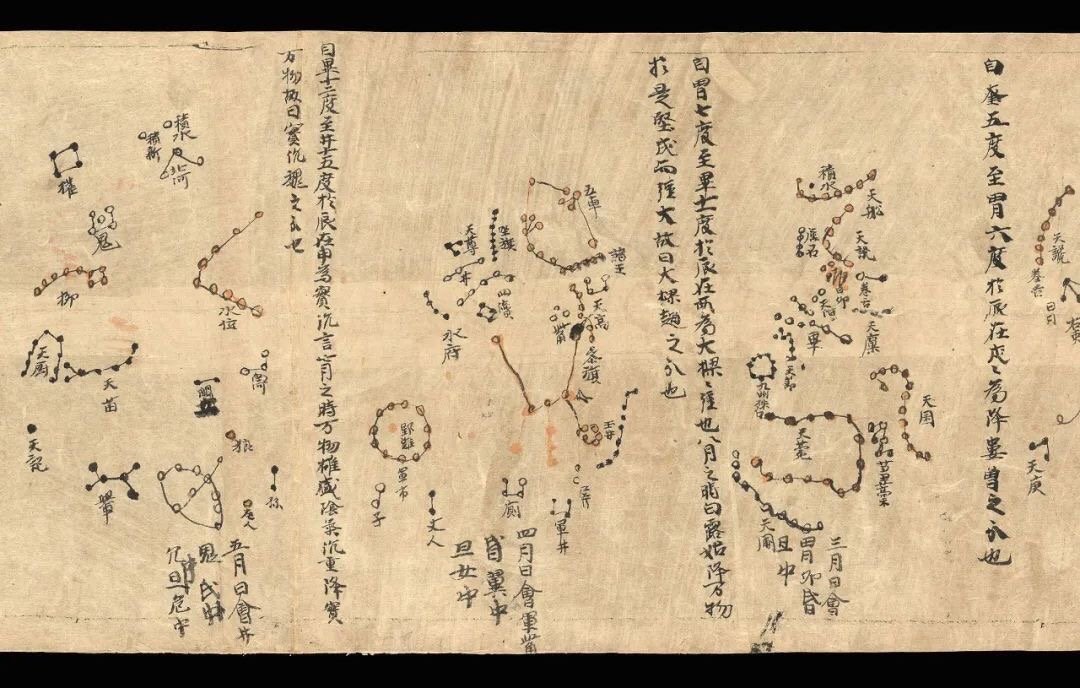 天讒
卷舌
天庾
自奎五度至胃六度於辰在戌々為降婁魯之分也
天船
積水
天讒
卷舌
礪石
昴
天廩
畢
天節
天囷
九州殊口
天菀
芻藁
天園
三月日會
胃昴昏
旦中
自胃七度至畢十一度於辰在酉為大樑々強也八月之時白露始降万物
於是堅成而強大故曰大樑趙之分也
五車
諸王
天高
觜
參旗
坐旗
天尊
井
四瀆
水府
玉井
軍井
廁
野雞
軍市
丈人
子
四月日會軍觜
昏翼中
旦女中
自畢十二度至井十五度於辰在申為實沉言七月之時万物雄盛陰氣沉重降實
万物故曰實沉魏之分也
積水
北河
積薪
水位
爟
鬼
柳
天廚
天苗
狼
弧
老人
天記
五月日會井
鬼氐中
旦危中